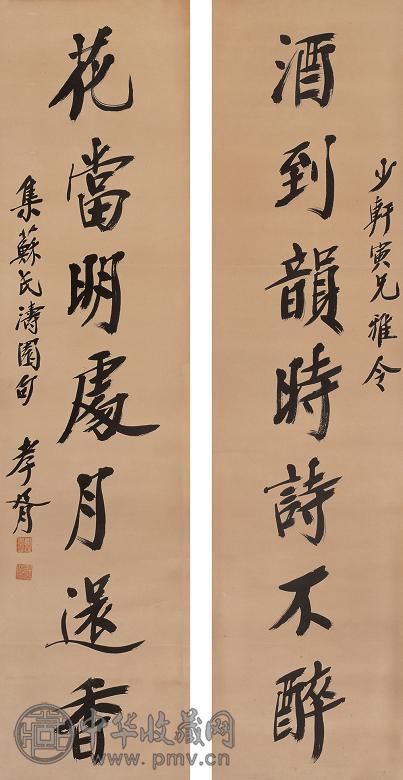 少軒寅兄雅令
酒到韻時詩不醉
花當明處月還香
集蘇氏濤園句 孝胥
中华收藏网
www.pmv.cn